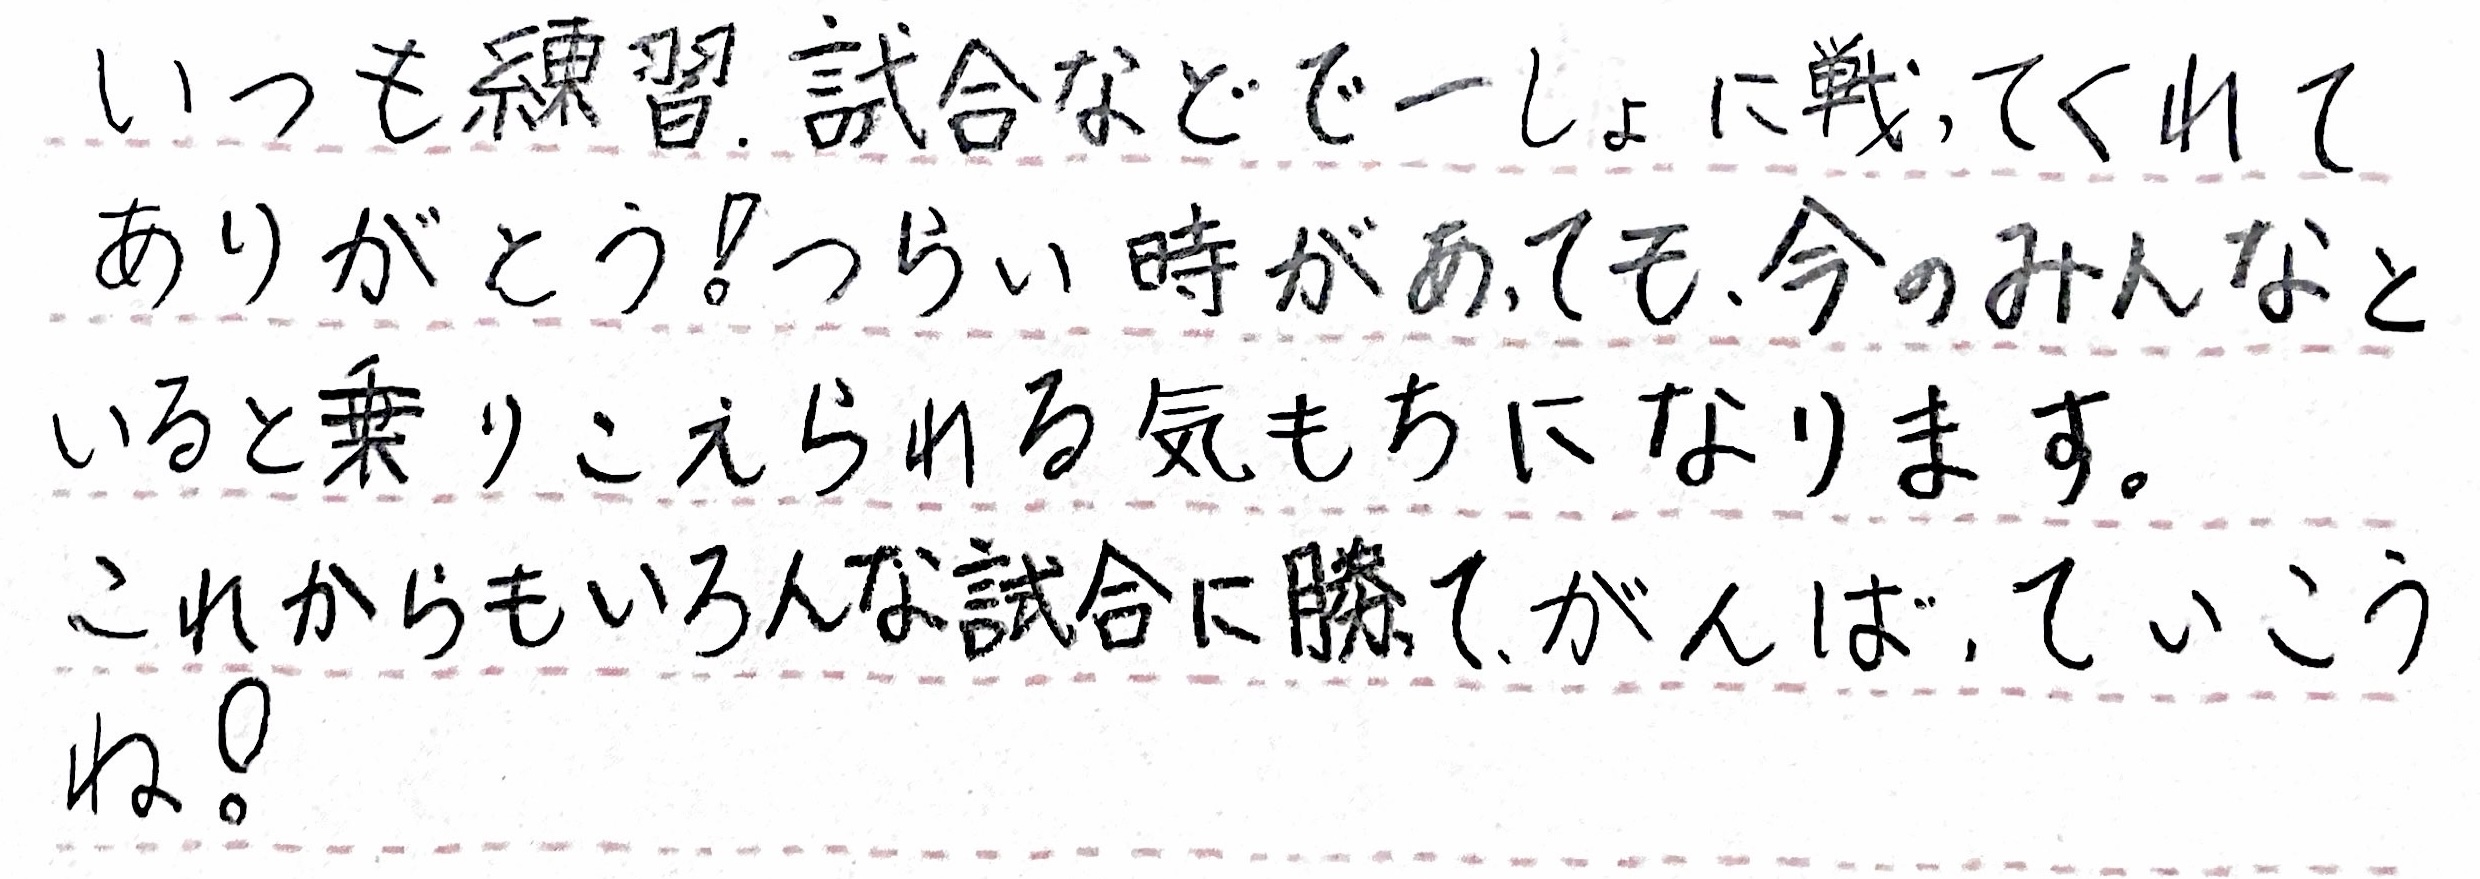 いつも練習、試合などで一しょに戦ってくれて
ありがとう!つらい時があっても、今のみんなと
いると乗りこえられる気もちになります。
これからもいろんな試合に勝って、がんばっていこう
ね!